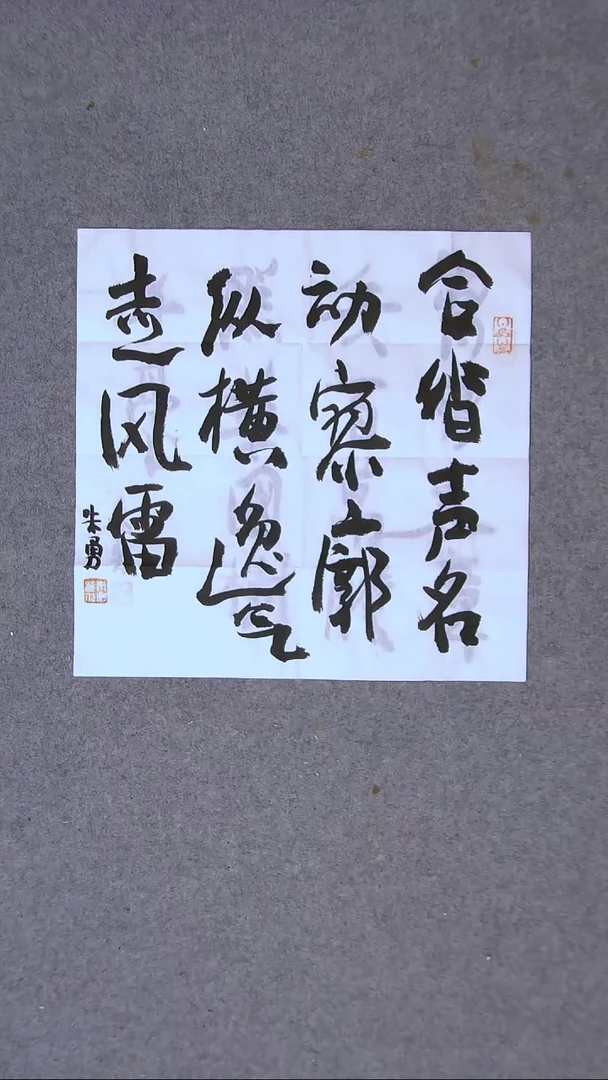 合借声名
动寥廓
纵横逸气
走风雷
朱勇